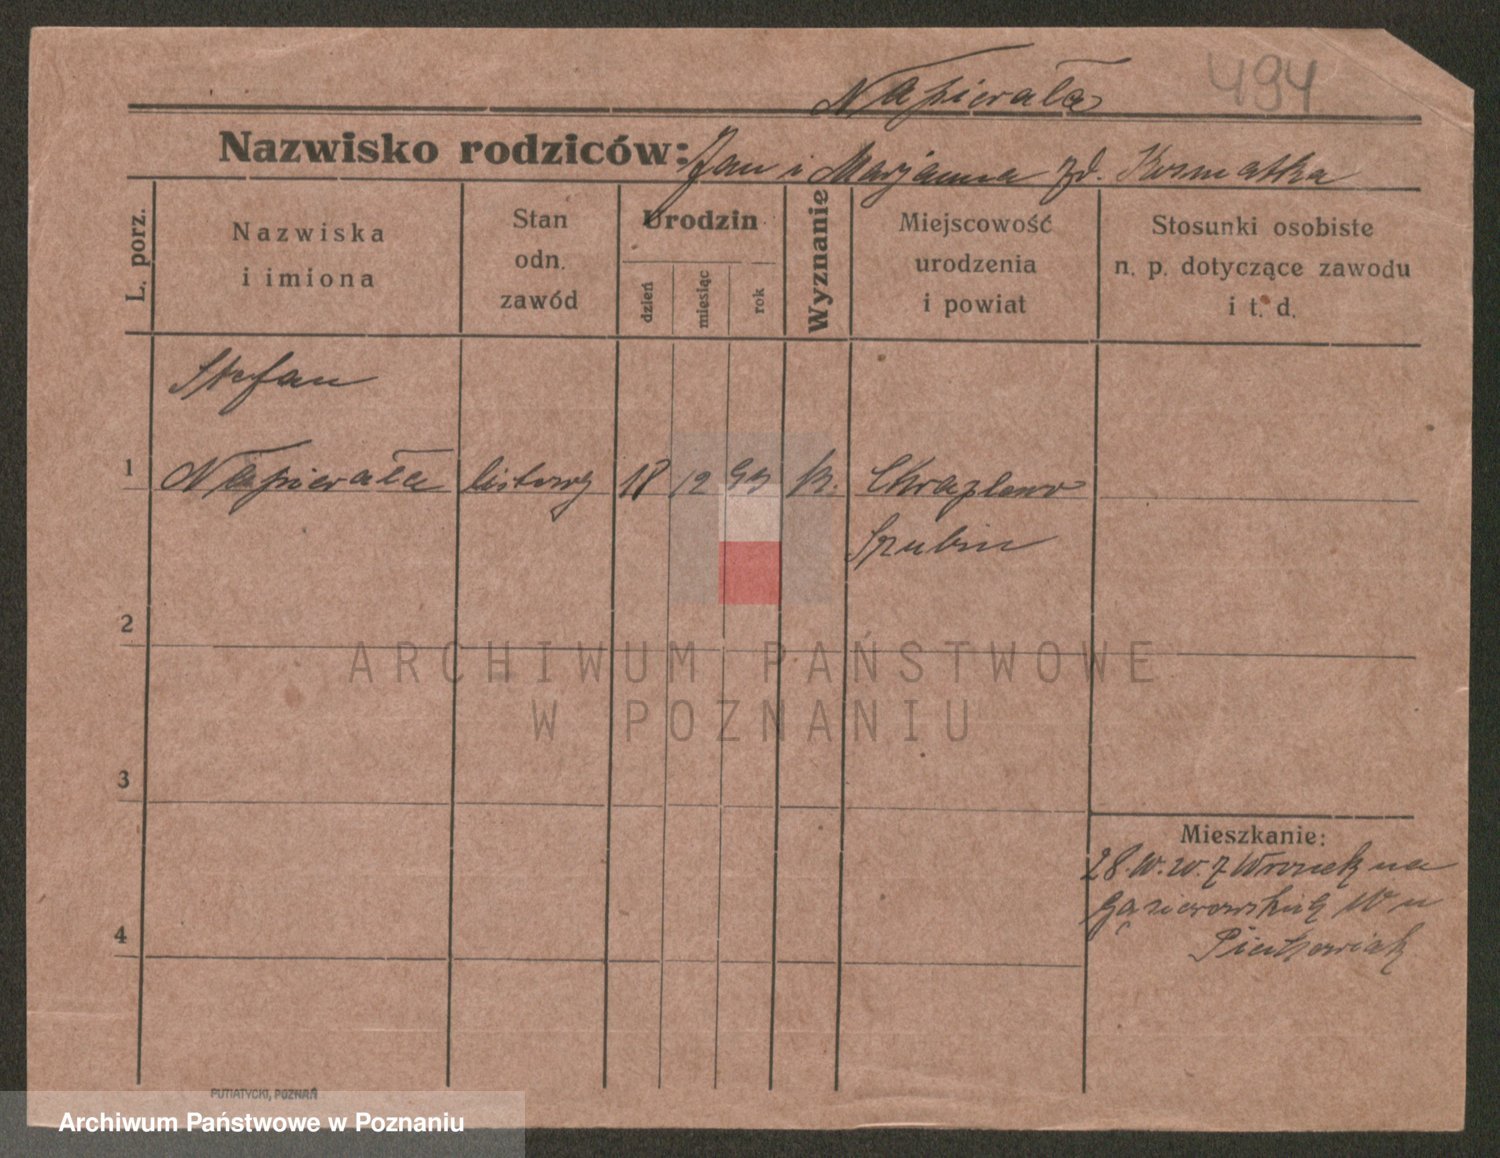 494
Napierała
Nazwisko rodziców: Jan i Marjanna zd. Kosmatka
L. porz.
Nazwiska
i imiona
Stan
odn.
zawód
Urodzin
dzień
miesiąc
rok
Wyznanie
Miejscowość
urodzenia
i powiat
Stosunki osobiste
n. p. dotyczące zawodu
i t. d.
Stefan
1 Napierała listowy 18 12 93 k. Chraplewo
Szubin
2
ARCHIWUM PAŃSTWOWE
W POZNANIU
3
Mieszkanie:
28. IV. w. z Wronek na
Gąsiorowskich IV u
4
Pietrowiak
PUTIATYCKI, POZNAŃ
Archiwum Państwowe w Poznaniu